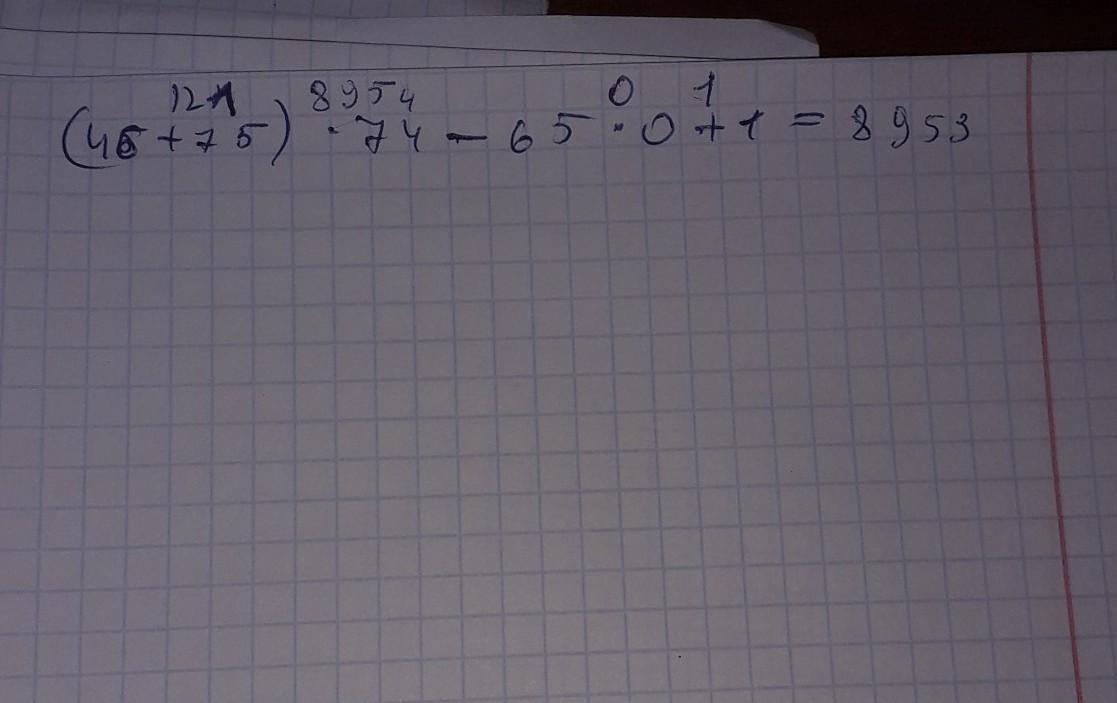 121 8954 0 1
(46+75) · 74 - 65 · 0 + 1 = 8953